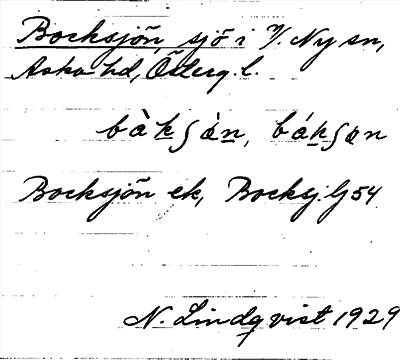 Bocksjön, sjö i V. Ny sn,
Aska hd, Österg. l.
bàkʃàn, bákʃan
Bocksjön ek, Bocksj. Gj 54
N. Lindqvist 1929